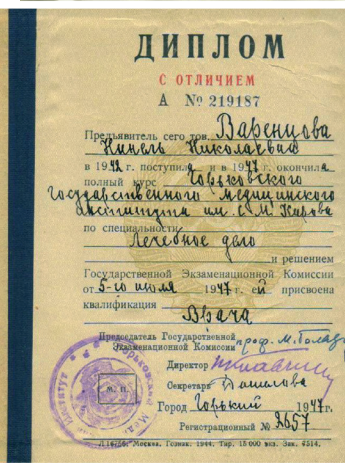 ДИПЛОМ
С ОТЛИЧИЕМ
А № 219187
Предъявитель сего тов. Варенцова
Нинель Николаевна
в 1942 г. поступила и в 1947 г. окончила
полный курс Горьковского
Государственного Медицинского
Института им. С. М. Кирова
по специальности
Лечебное дело
и решением
Государственной Экзаменационной Комиссии
от 5-го июля 1947 г. ей присвоена
квалификация
Врача
Председатель Государственной
Экзаменационной Комиссии проф. М.
Директор
М. П.
Секретарь
Город Горький 1947 г.
Регистрационный № 2657
Москва. Гознак. 1944. Тир. 15 000 экз. Зак. 4514.